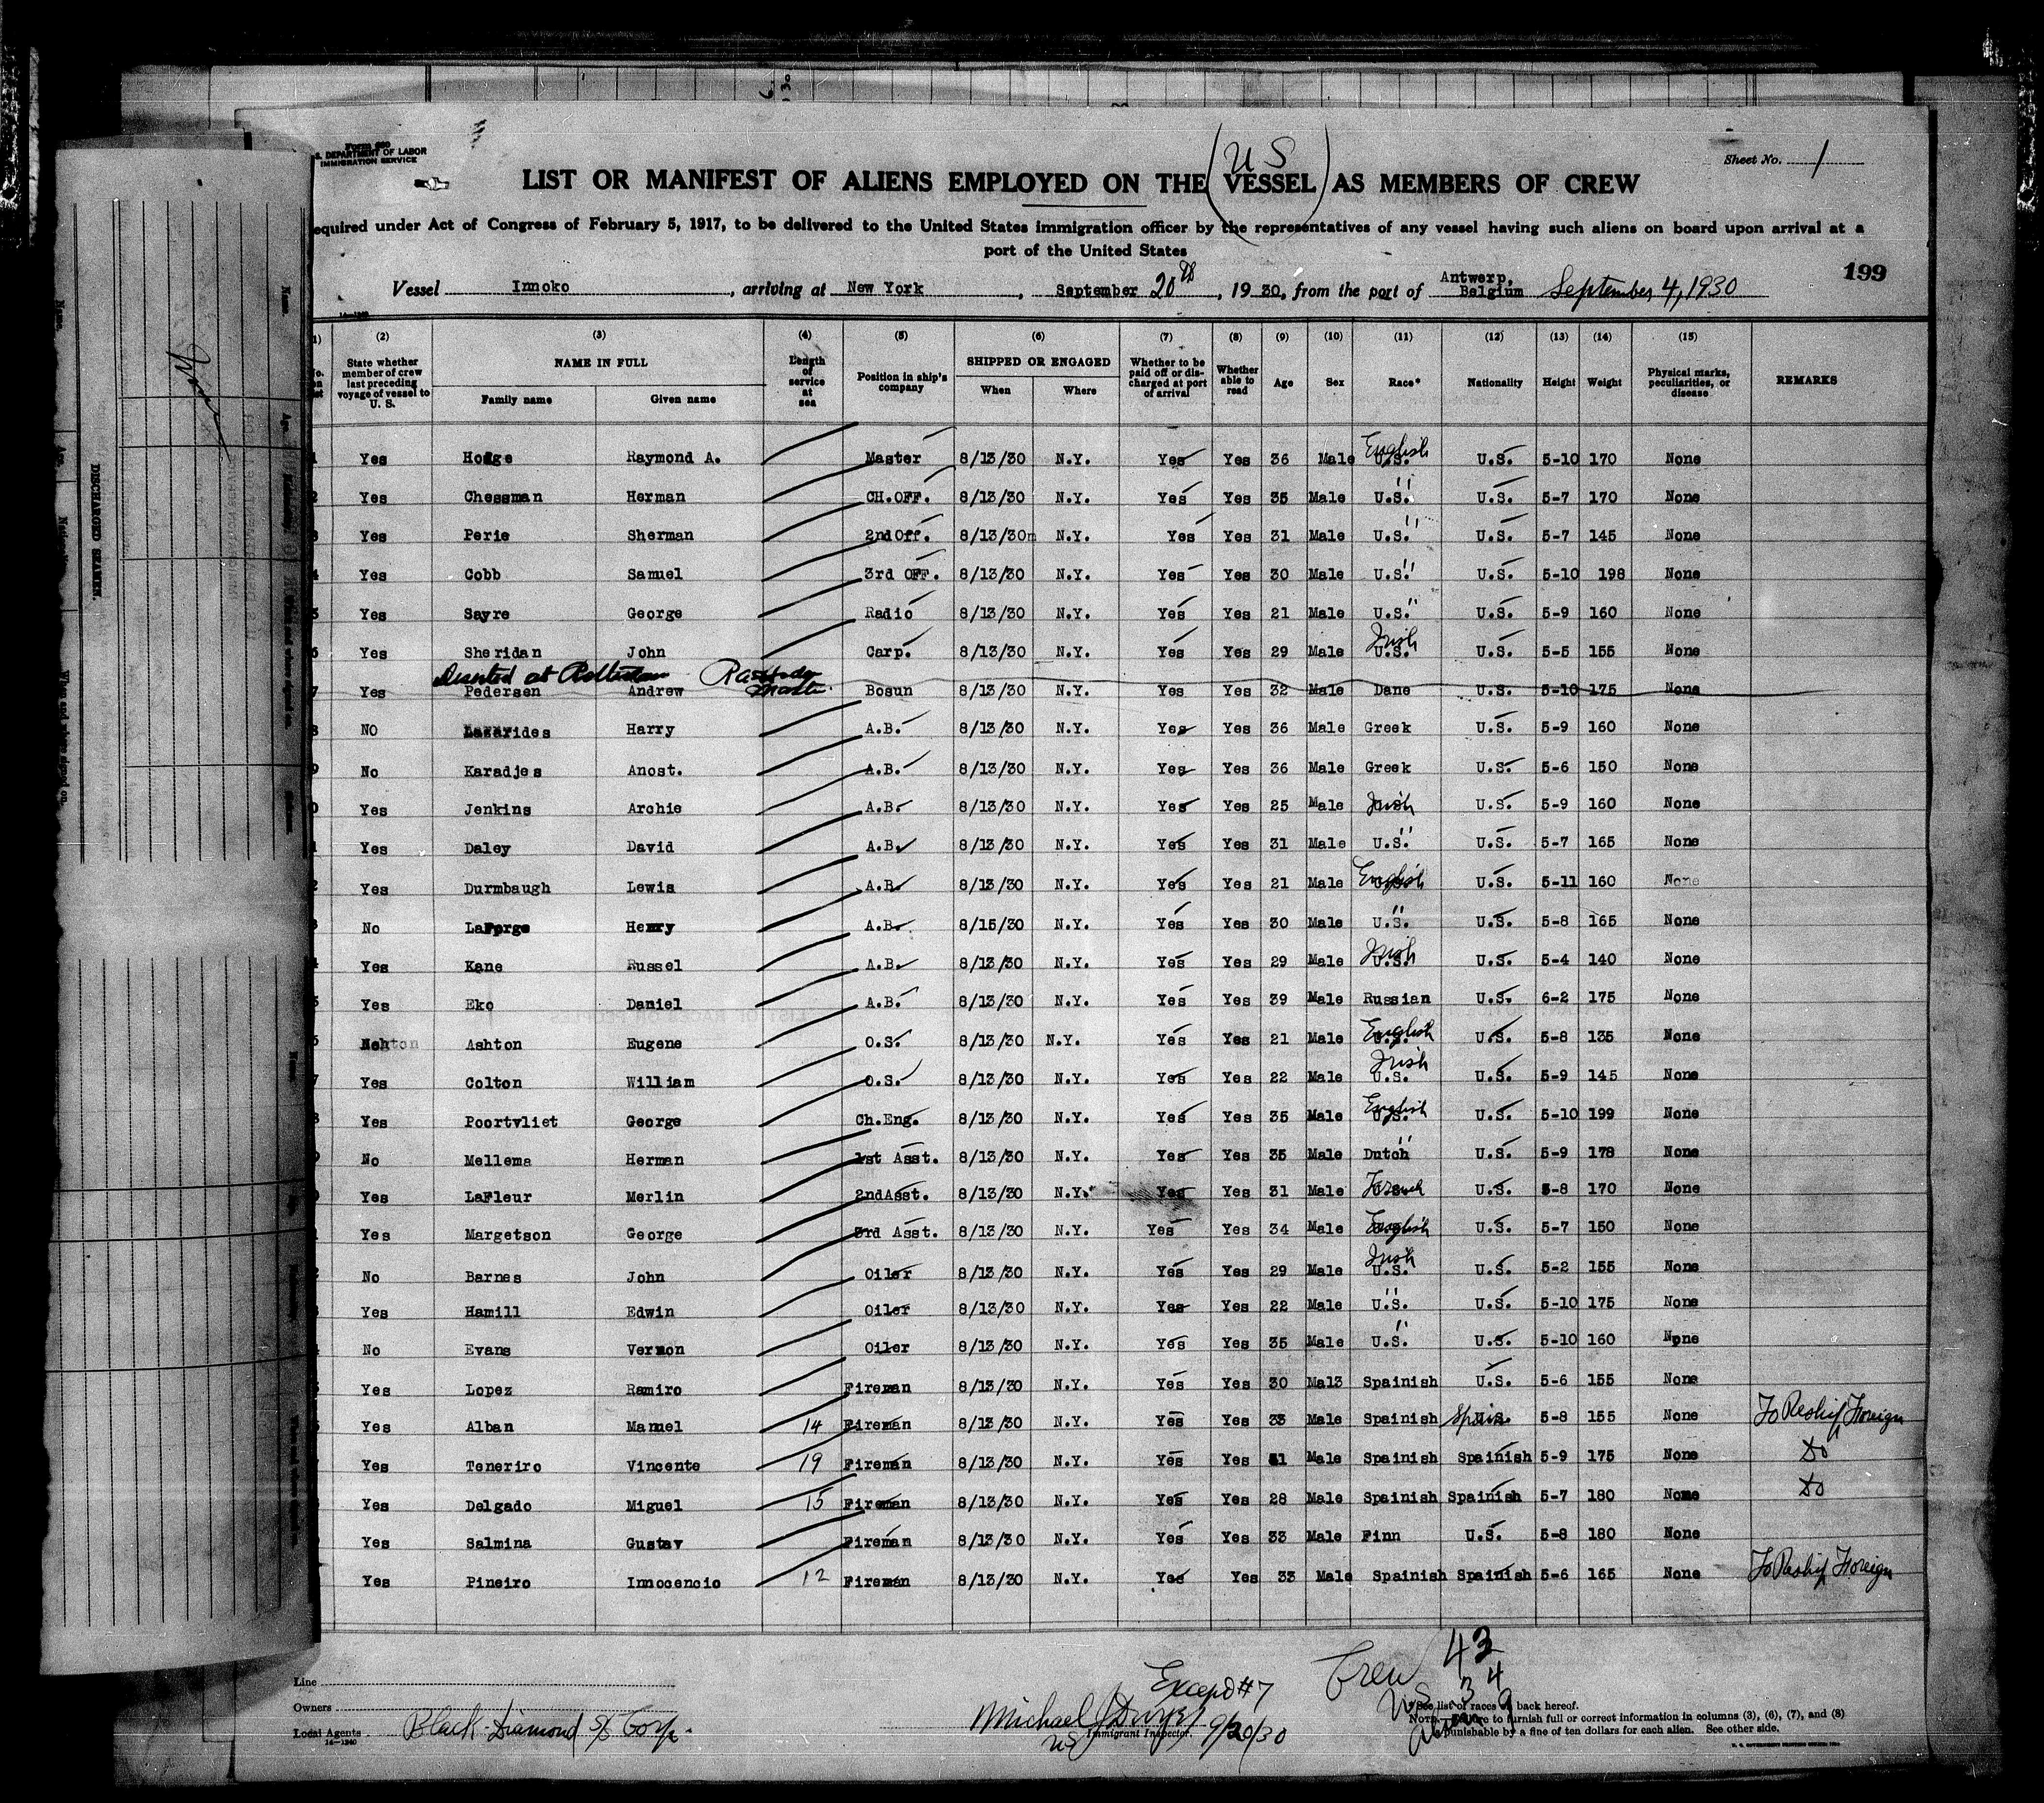 Form 680
S. DEPARTMENT OF LABOR
IMMIGRATION SERVICE
Sheet No. 1
(U S)
LIST OR MANIFEST OF ALIENS EMPLOYED ON THE VESSEL AS MEMBERS OF CREW
equired under Act of Congress of February 5, 1917, to be delivered to the United States immigration officer by the representatives of any vessel having such aliens on board upon arrival at a
port of the United States
199
Vessel Innoko, arriving at New York, September 20th, 1930, from the port of Antwerp, Belgium September 4, 1930
(2) (3) (4) (5) (6) (7) (8) (9) (10) (11) (12) (13) (14) (15)
State whether member of crew last preceding voyage of vessel to U. S. NAME IN FULL Family name Given name Length of service at sea Position in ship's company SHIPPED OR ENGAGED When Where Whether to be paid off or discharged at port of arrival Whether able to read Age Sex Race* Nationality Height Weight Physical marks, peculiarities, or disease REMARKS
1 Yes Hodge Raymond A. Master 8/13/30 N.Y. Yes Yes 36 Male U.S. English U.S. 5-10 170 None
2 Yes Chessman Herman CH.OFF. 8/13/30 N.Y. Yes Yes 35 Male U.S. " U.S. 5-7 170 None
3 Yes Perie Sherman 2ndOff. 8/13/30m N.Y. Yes Yes 31 Male U.S. " U.S. 5-7 145 None
4 Yes Cobb Samuel 3rd OFF. 8/13/30 N.Y. Yes Yes 30 Male U.S. " U.S. 5-10 198 None
5 Yes Sayre George Radio 8/13/30 N.Y. Yes Yes 21 Male U.S. " U.S. 5-9 160 None
6 Yes Sheridan John Carp. 8/13/30 N.Y. Yes Yes 29 Male U.S. Irish U.S. 5-5 155 None
Deserted at Rotterdam Master
7 Yes Pedersen Andrew Bosun 8/13/30 N.Y. Yes Yes 32 Male Dane U.S. 5-10 175 None
8 NO Lazarides Harry A.B. 8/13/30 N.Y. Yes Yes 36 Male Greek U.S. 5-9 160 None
9 No Karadjes Anost. A.B. 8/13/30 N.Y. Yes Yes 36 Male Greek U.S. 5-6 150 None
0 Yes Jenkins Archie A.B. 8/13/30 N.Y. Yes Yes 25 Male Irish U.S. 5-9 160 None
1 Yes Daley David A.B. 8/13/30 N.Y. Yes Yes 31 Male U.S. " U.S. 5-7 165 None
2 Yes Durmbaugh Lewis A.B. 8/13/30 N.Y. Yes Yes 21 Male English U.S. 5-11 160 None
3 No LaForge Henry A.B. 8/15/30 N.Y. Yes Yes 30 Male U.S. " U.S. 5-8 165 None
4 Yes Kane Russel A.B. 8/13/30 N.Y. Yes Yes 29 Male U.S. Irish U.S. 5-4 140 None
5 Yes Eko Daniel A.B. 8/13/30 N.Y. Yes Yes 39 Male Russian U.S. 6-2 175 None
6 Ashton Eugene O.S. 8/13/30 N.Y. Yes Yes 21 Male U.S. English U.S. 5-8 135 None
7 Yes Colton William O.S. 8/13/30 N.Y. Yes Yes 22 Male U.S. Irish U.S. 5-9 145 None
8 Yes Poortvliet George Ch.Eng. 8/13/30 N.Y. Yes Yes 35 Male U.S. English U.S. 5-10 199 None
9 No Mellema Herman 1st Asst. 8/13/30 N.Y. Yes Yes 35 Male Dutch " U.S. 5-9 178 None
0 Yes LaFleur Merlin 2ndAsst. 8/13/30 N.Y. Yes Yes 31 Male French U.S. 5-8 170 None
1 Yes Margetson George 3rd Asst. 8/13/30 N.Y. Yes Yes 34 Male English U.S. 5-7 150 None
2 No Barnes John Oiler 8/13/30 N.Y. Yes Yes 29 Male U.S. Irish U.S. 5-2 155 None
3 Yes Hamill Edwin Oiler 8/13/30 N.Y. Yes Yes 22 Male U.S. " U.S. 5-10 175 None
4 No Evans Vernon Oiler 8/13/30 N.Y. Yes Yes 35 Male U.S. " U.S. 5-10 160 None
5 Yes Lopez Ramiro Fireman 8/13/30 N.Y. Yes Yes 30 Mal3 Spainish U.S. 5-6 155 None
6 Yes Alban Manuel 14 Fireman 8/13/30 N.Y. Yes Yes 33 Male Spainish Spain 5-8 155 None To Reship Foreign
7 Yes Teneriro Vincente 19 Fireman 8/13/30 N.Y. Yes Yes 41 Male Spainish Spainish 5-9 175 None Do
8 Yes Delgado Miguel 15 Fireman 8/13/30 N.Y. Yes Yes 28 Male Spainish Spainish 5-7 180 None Do
9 Yes Salmina Gustav Fireman 8/13/30 N.Y. Yes Yes 33 Male Finn U.S. 5-8 180 None
Yes Pineiro Innocencio 12 Fireman 8/13/30 N.Y. Yes Yes 33 Male Spainish Spainish 5-6 165 None To Reship Foreign
Crew 43
US 34
Aliens 9
Except #7
Line
Owners
Local Agents Black Diamond SS Corp.
14-1240
Michael 9/20/30
US Immigrant Inspector.
*See list of races on back hereof.
NOTE.—Failure to furnish full or correct information in columns (3), (6), (7), and (8)
is punishable by a fine of ten dollars for each alien. See other side.
DISCHARGED SEAMEN.